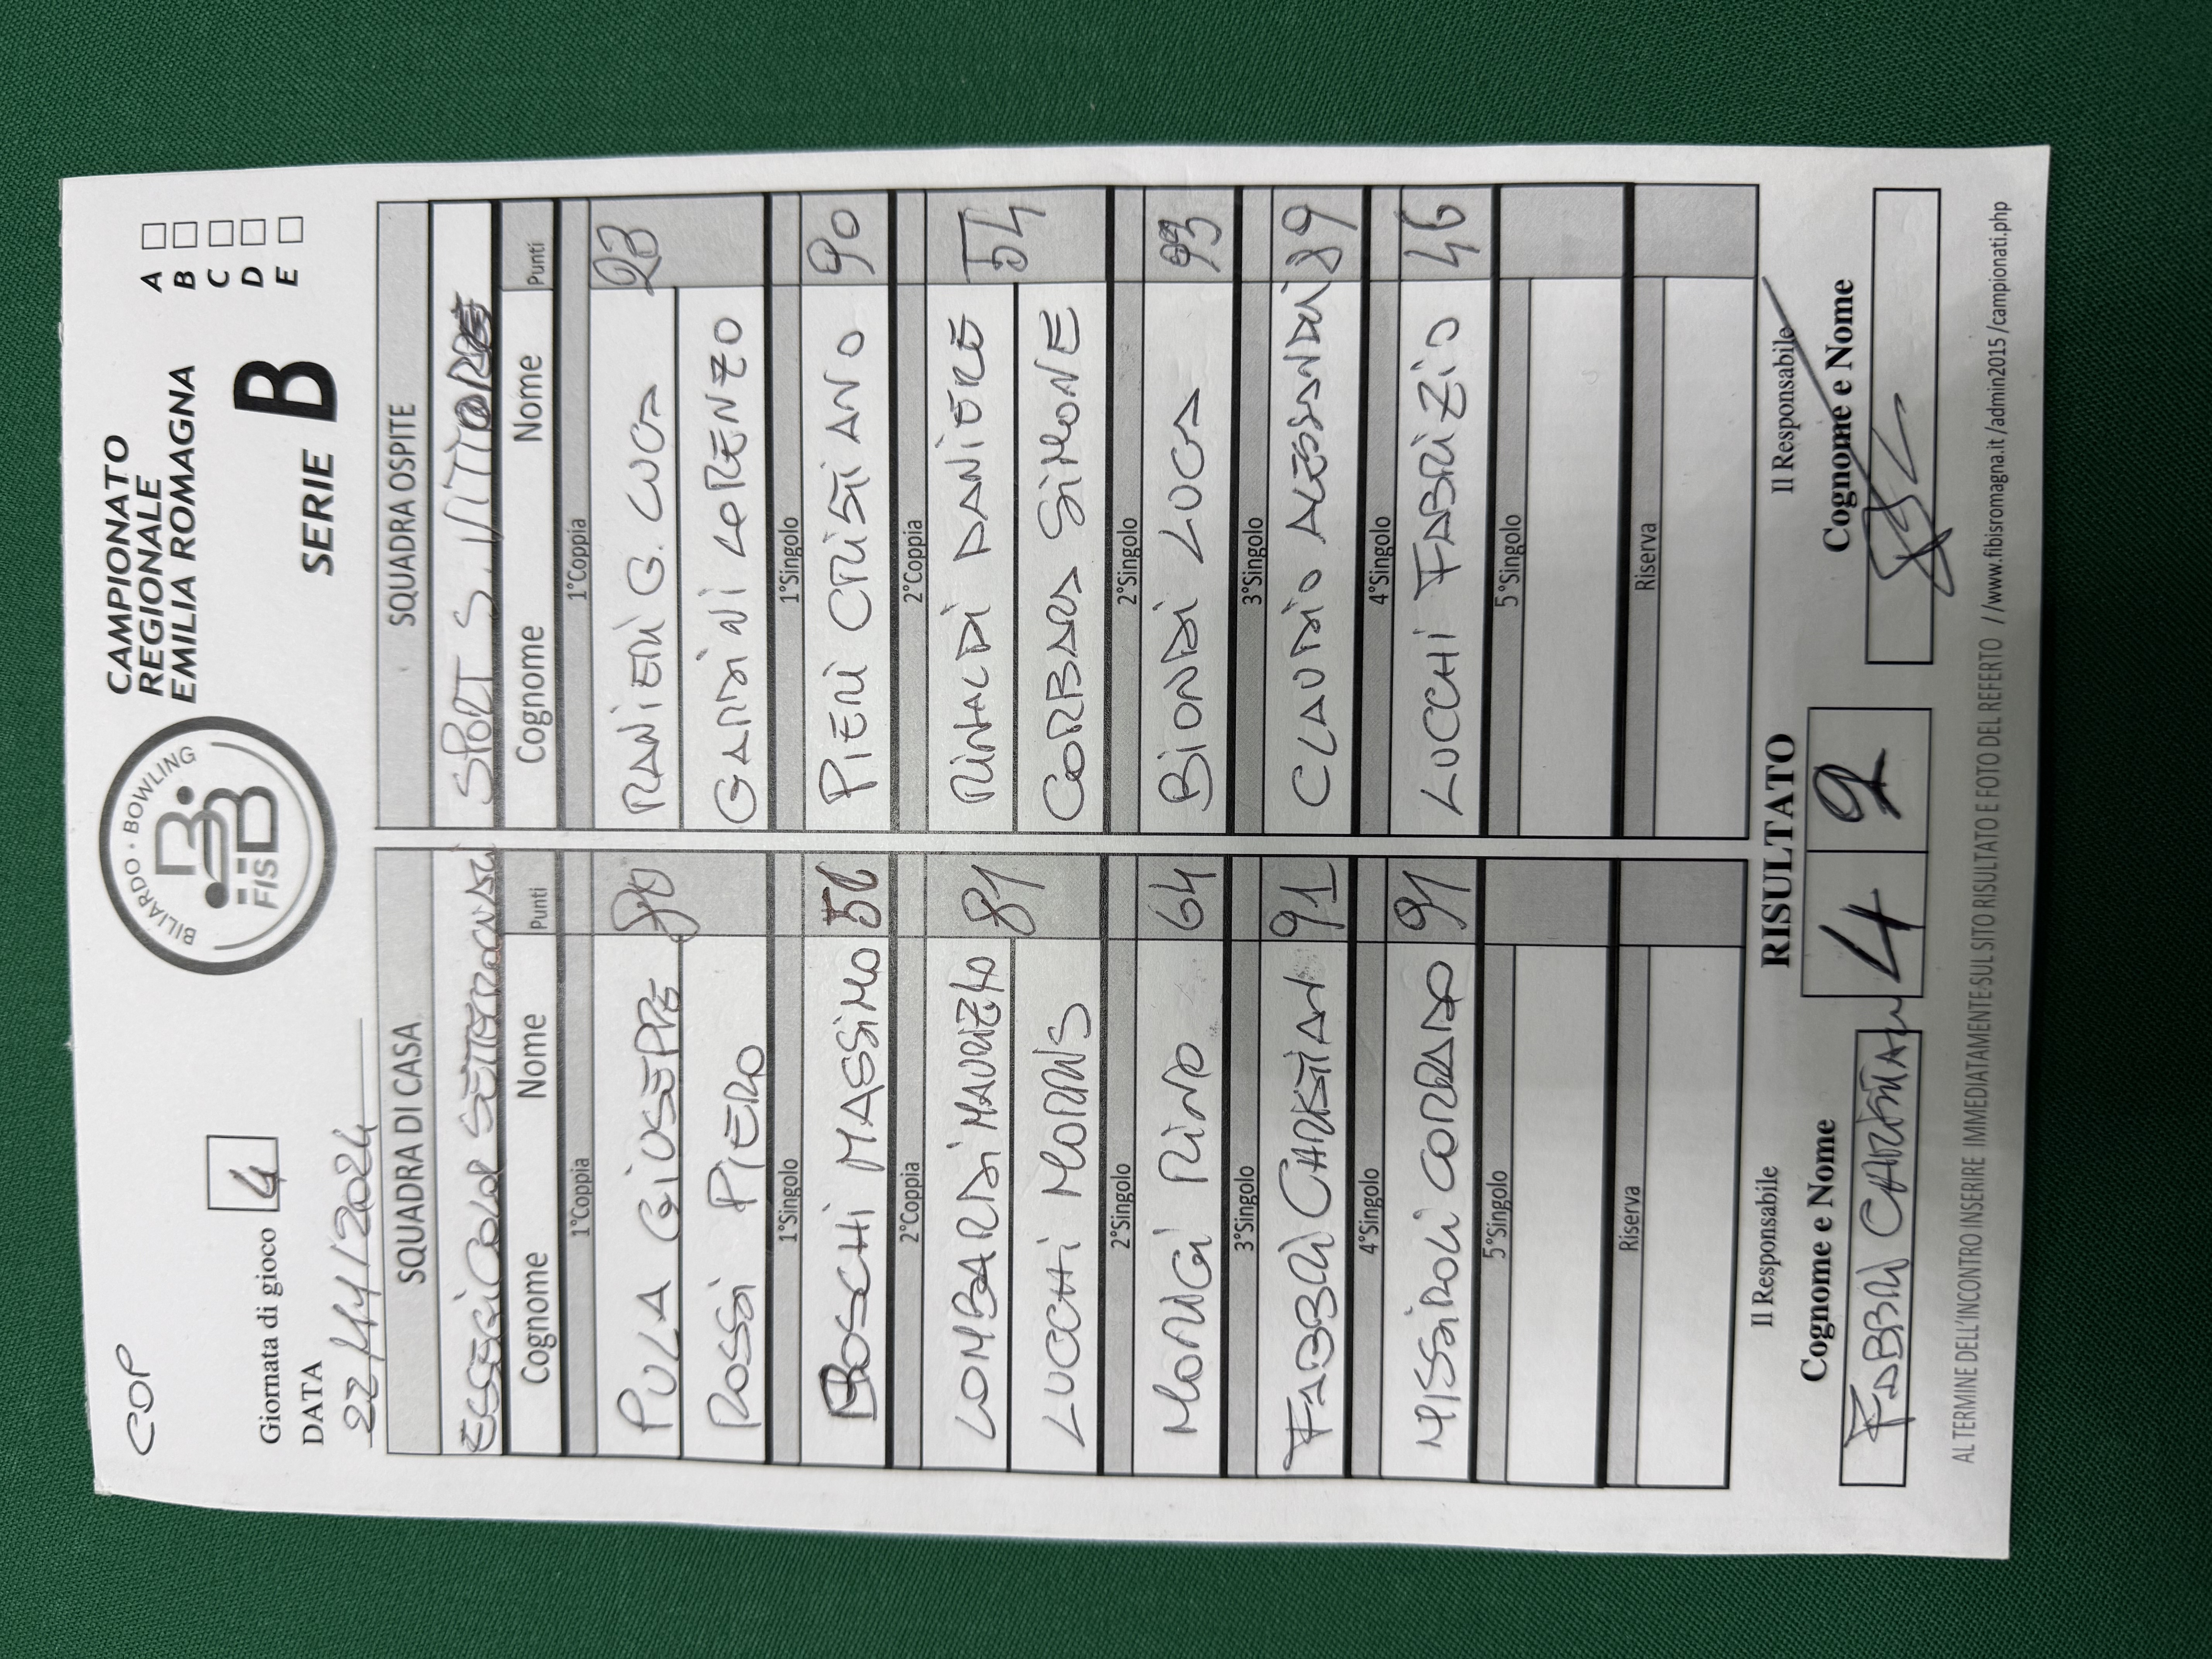 COP
BILIARDO · BOWLING
FIS BB
CAMPIONATO
REGIONALE
EMILIA ROMAGNA
A
B
C
D
E
Giornata di gioco 4
DATA
22/11/2024
SERIE B
SQUADRA DI CASA
Cognome Nome Punti
1°Coppia
PULA GIUSEPPE
ROSSI PIERO
1°Singolo
BOSCHI MASSIMO 56
2°Coppia
LOMBARDI MAURIZIO 81
LUCCHI MORRIS
2°Singolo
MORIGI RINO 64
3°Singolo
FABBRI CHRISTIAN 91
4°Singolo
MISSIROLI CORRADO 91
5°Singolo
Riserva
SQUADRA OSPITE
SPORT S. VITTORE
Cognome Nome Punti
1°Coppia
RANIERI G. LUCA 93
GARDINI LORENZO
1°Singolo
PIERI CRISTIANO 90
2°Coppia
RINALDI DANIERE 54
CORBARA SIMONE
2°Singolo
BIONDI LUCA 93
3°Singolo
CLAUDIO ALESSANDRI 89
4°Singolo
LUCCHI FABRIZIO 46
5°Singolo
Riserva
Il Responsabile
Cognome e Nome
FABBRI CHRISTIAN
RISULTATO
4 2
Il Responsabile
Cognome e Nome
AL TERMINE DELL'INCONTRO INSERIRE IMMEDIATAMENTE SUL SITO RISULTATO E FOTO DEL REFERTO //www.fibisromagna.it /admin2015 /campionati.php